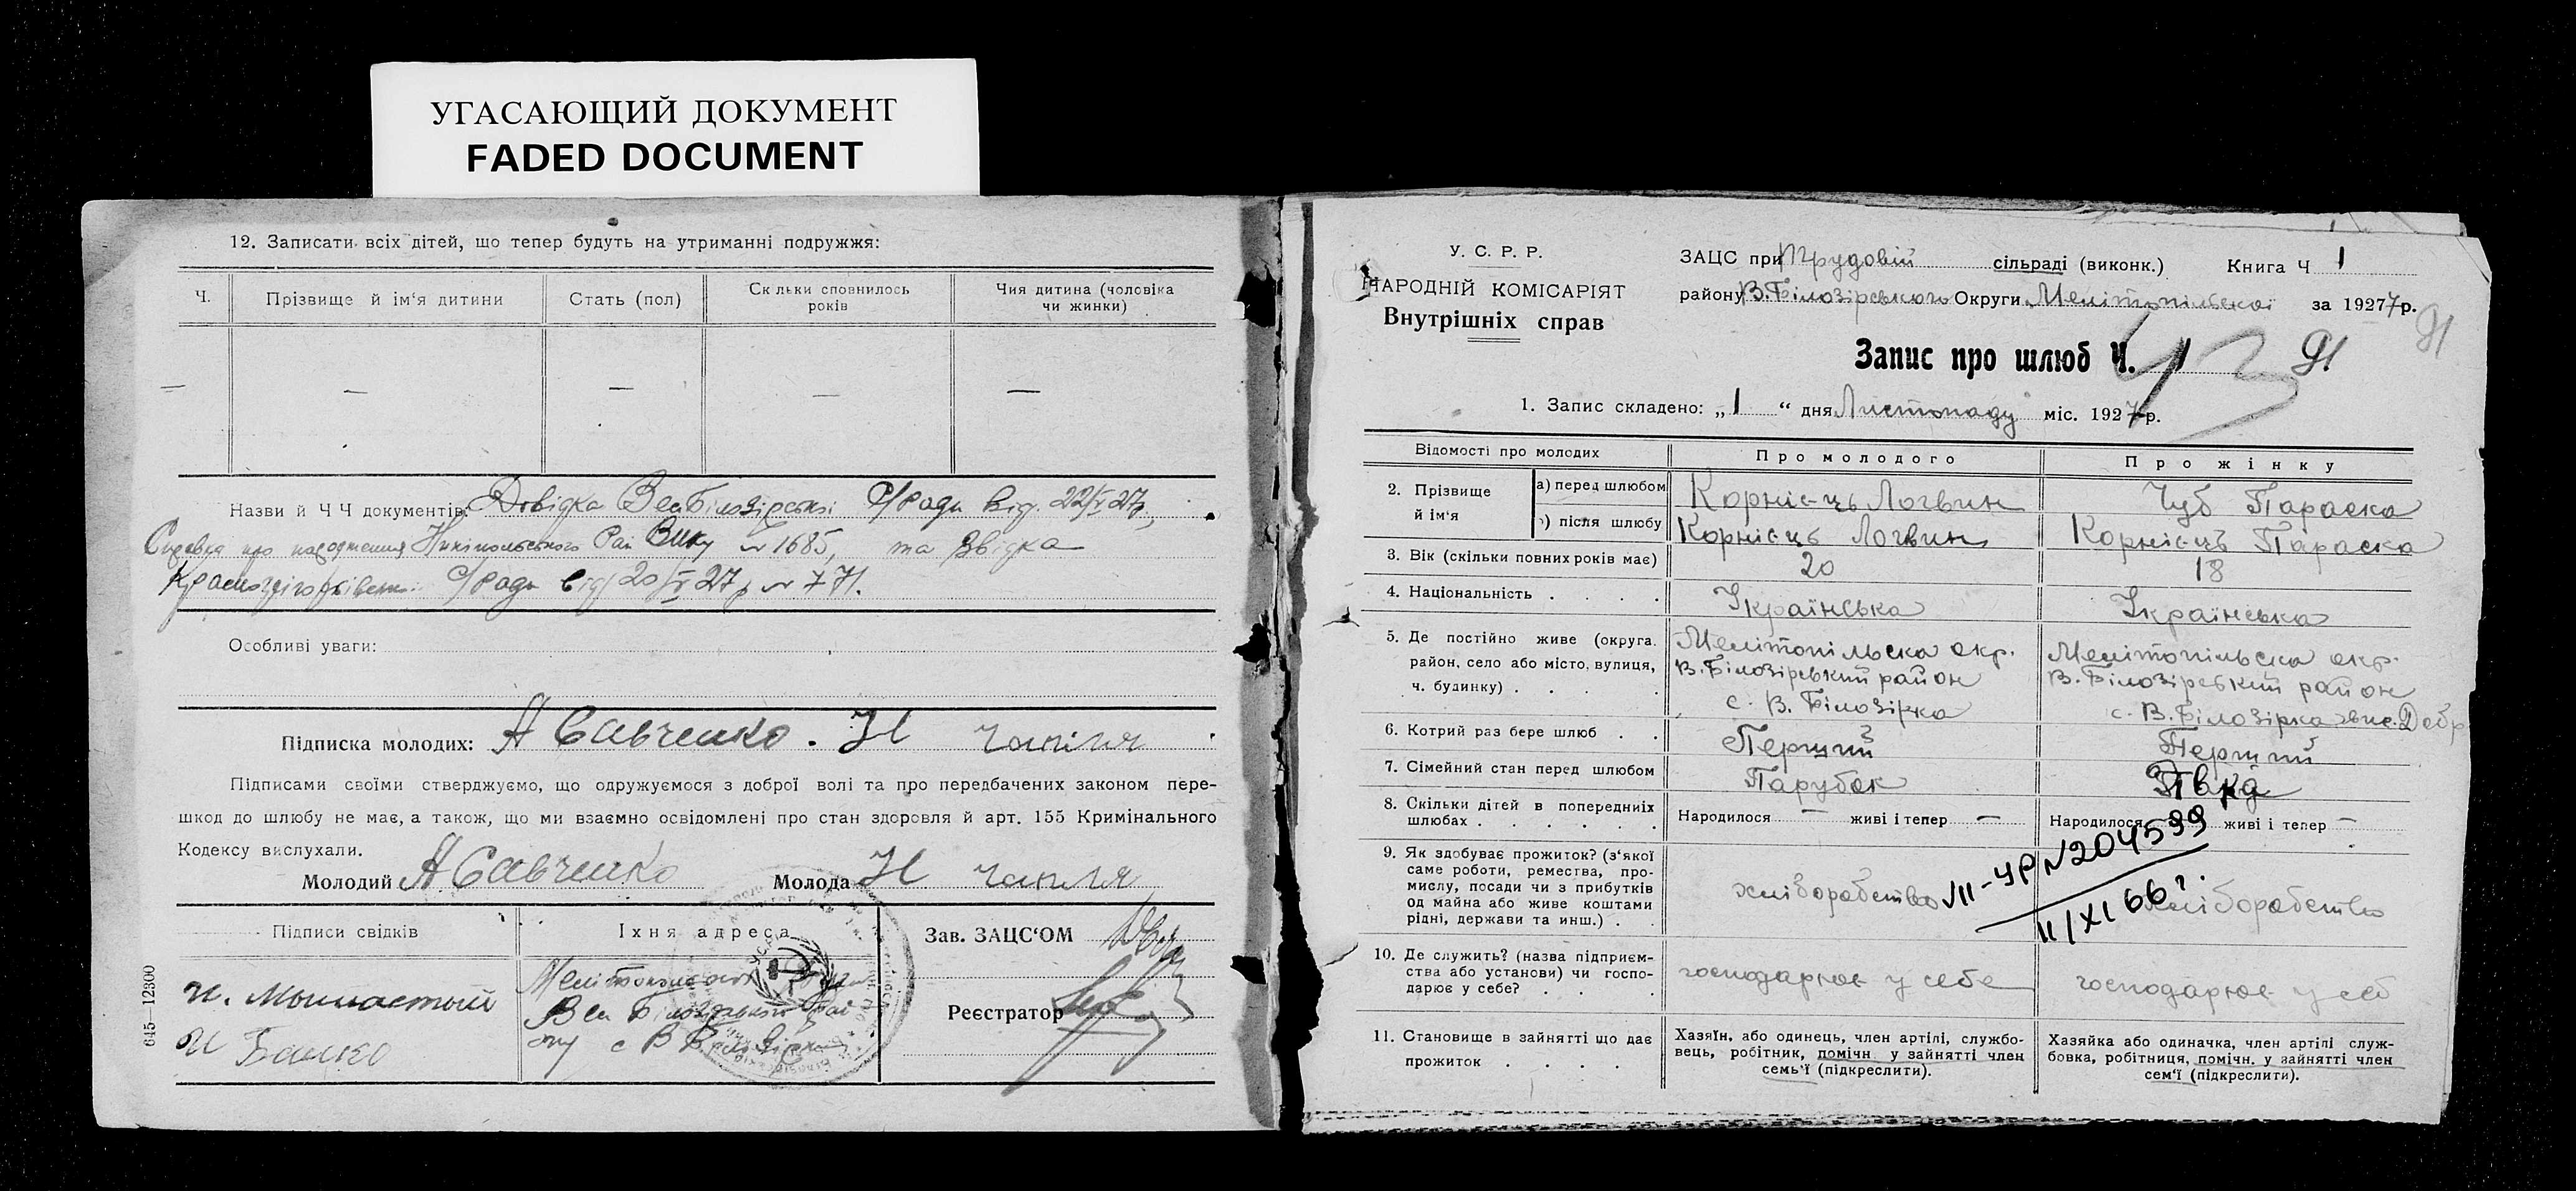 УГАСАЮЩИЙ ДОКУМЕНТ
FADED DOCUMENT
12. Записати всіх дітей, що тепер будуть на утриманні подружжя:
Ч.
Прізвище й ім'я дитини
Стать (пол)
Скільки сповнилось
років
Чия дитина (чоловіка
чи жинки)
— — — — —
Назви й Ч Ч документів: Довідка С/ради від 22/V 27р.,
Справка про народження Нікіпольського Рай Вику № 1685, та Звідка
С/ради від 20/V 27р № 771.
Особливі уваги:
Підписка молодих: А Савченко. Н чапля
Підписами своїми стверджуємо, що одружуємося з доброї волі та про передбачених законом пере-
шкод до шлюбу не має, а також, що ми взаємно освідомлені про стан здоровля й арт. 155 Кримінального
Кодексу вислухали.
Молодий А Савченко Молода Н чапля
Підписи свідків
Їхня адреса
Зав. ЗАЦС'ОМ
Реєстратор
с В Білозірка
645—12300
У. С. Р. Р.
НАРОДНІЙ КОМІСАРІЯТ
Внутрішніх справ
ЗАЦС при Трудовій сільраді (виконк.) Книга Ч 1
району В. Білозірського Округи Мелітопільської за 1927 7 р.
91
Запис про шлюб Ч. 1 91
1. Запис складено: „1“ дня Листопаду міс. 1927 р.
Відомості про молодих
Про молодого
Про жінку
2. Прізвище
й ім'я
а) перед шлюбом
Корнієць Логвин
Чуб Параска
б) після шлюбу
Корнієць Логвин
Корнієць Параска
3. Вік (скільки повних років має)
20
18
4. Національність . . . .
Українська
Українська
5. Де постійно живе (округа,
район, село або місто, вулиця,
ч. будинку) . . . .
Мелітопільська окр.
В. Білозірський район
с. В. Білозірка
Мелітопільська окр.
В. Білозірський район
с. В. Білозірка
6. Котрий раз бере шлюб . .
Перший
Перший
7. Сімейний стан перед шлюбом
Парубок
Дівка
8. Скільки дітей в попередніх
шлюбах . . . . . .
Народилося — живі і тепер —
Народилося — живі і тепер —
VII-УР №204599
11/XI 66 г.
9. Як здобуває прожиток? (з'якої
саме роботи, ремества, про-
мислу, посади чи з прибутків
од майна або живе коштами
рідні, держави та инш.) . .
хліборобство
хліборобство
10. Де служить? (назва підприєм-
ства або установи) чи госпо-
дарює у себе? . . . .
господарює у себе
господарює у себ
11. Становище в зайнятті що дає
прожиток . . . .
Хазяїн, або одинець, член артілі, службо-
вець, робітник, помічн. у зайнятті член
семь'ї (підкреслити).
Хазяйка або одиначка, член артілі служ-
бовка, робітниця, помічн. у зайнятті член
сем'ї (підкреслити).